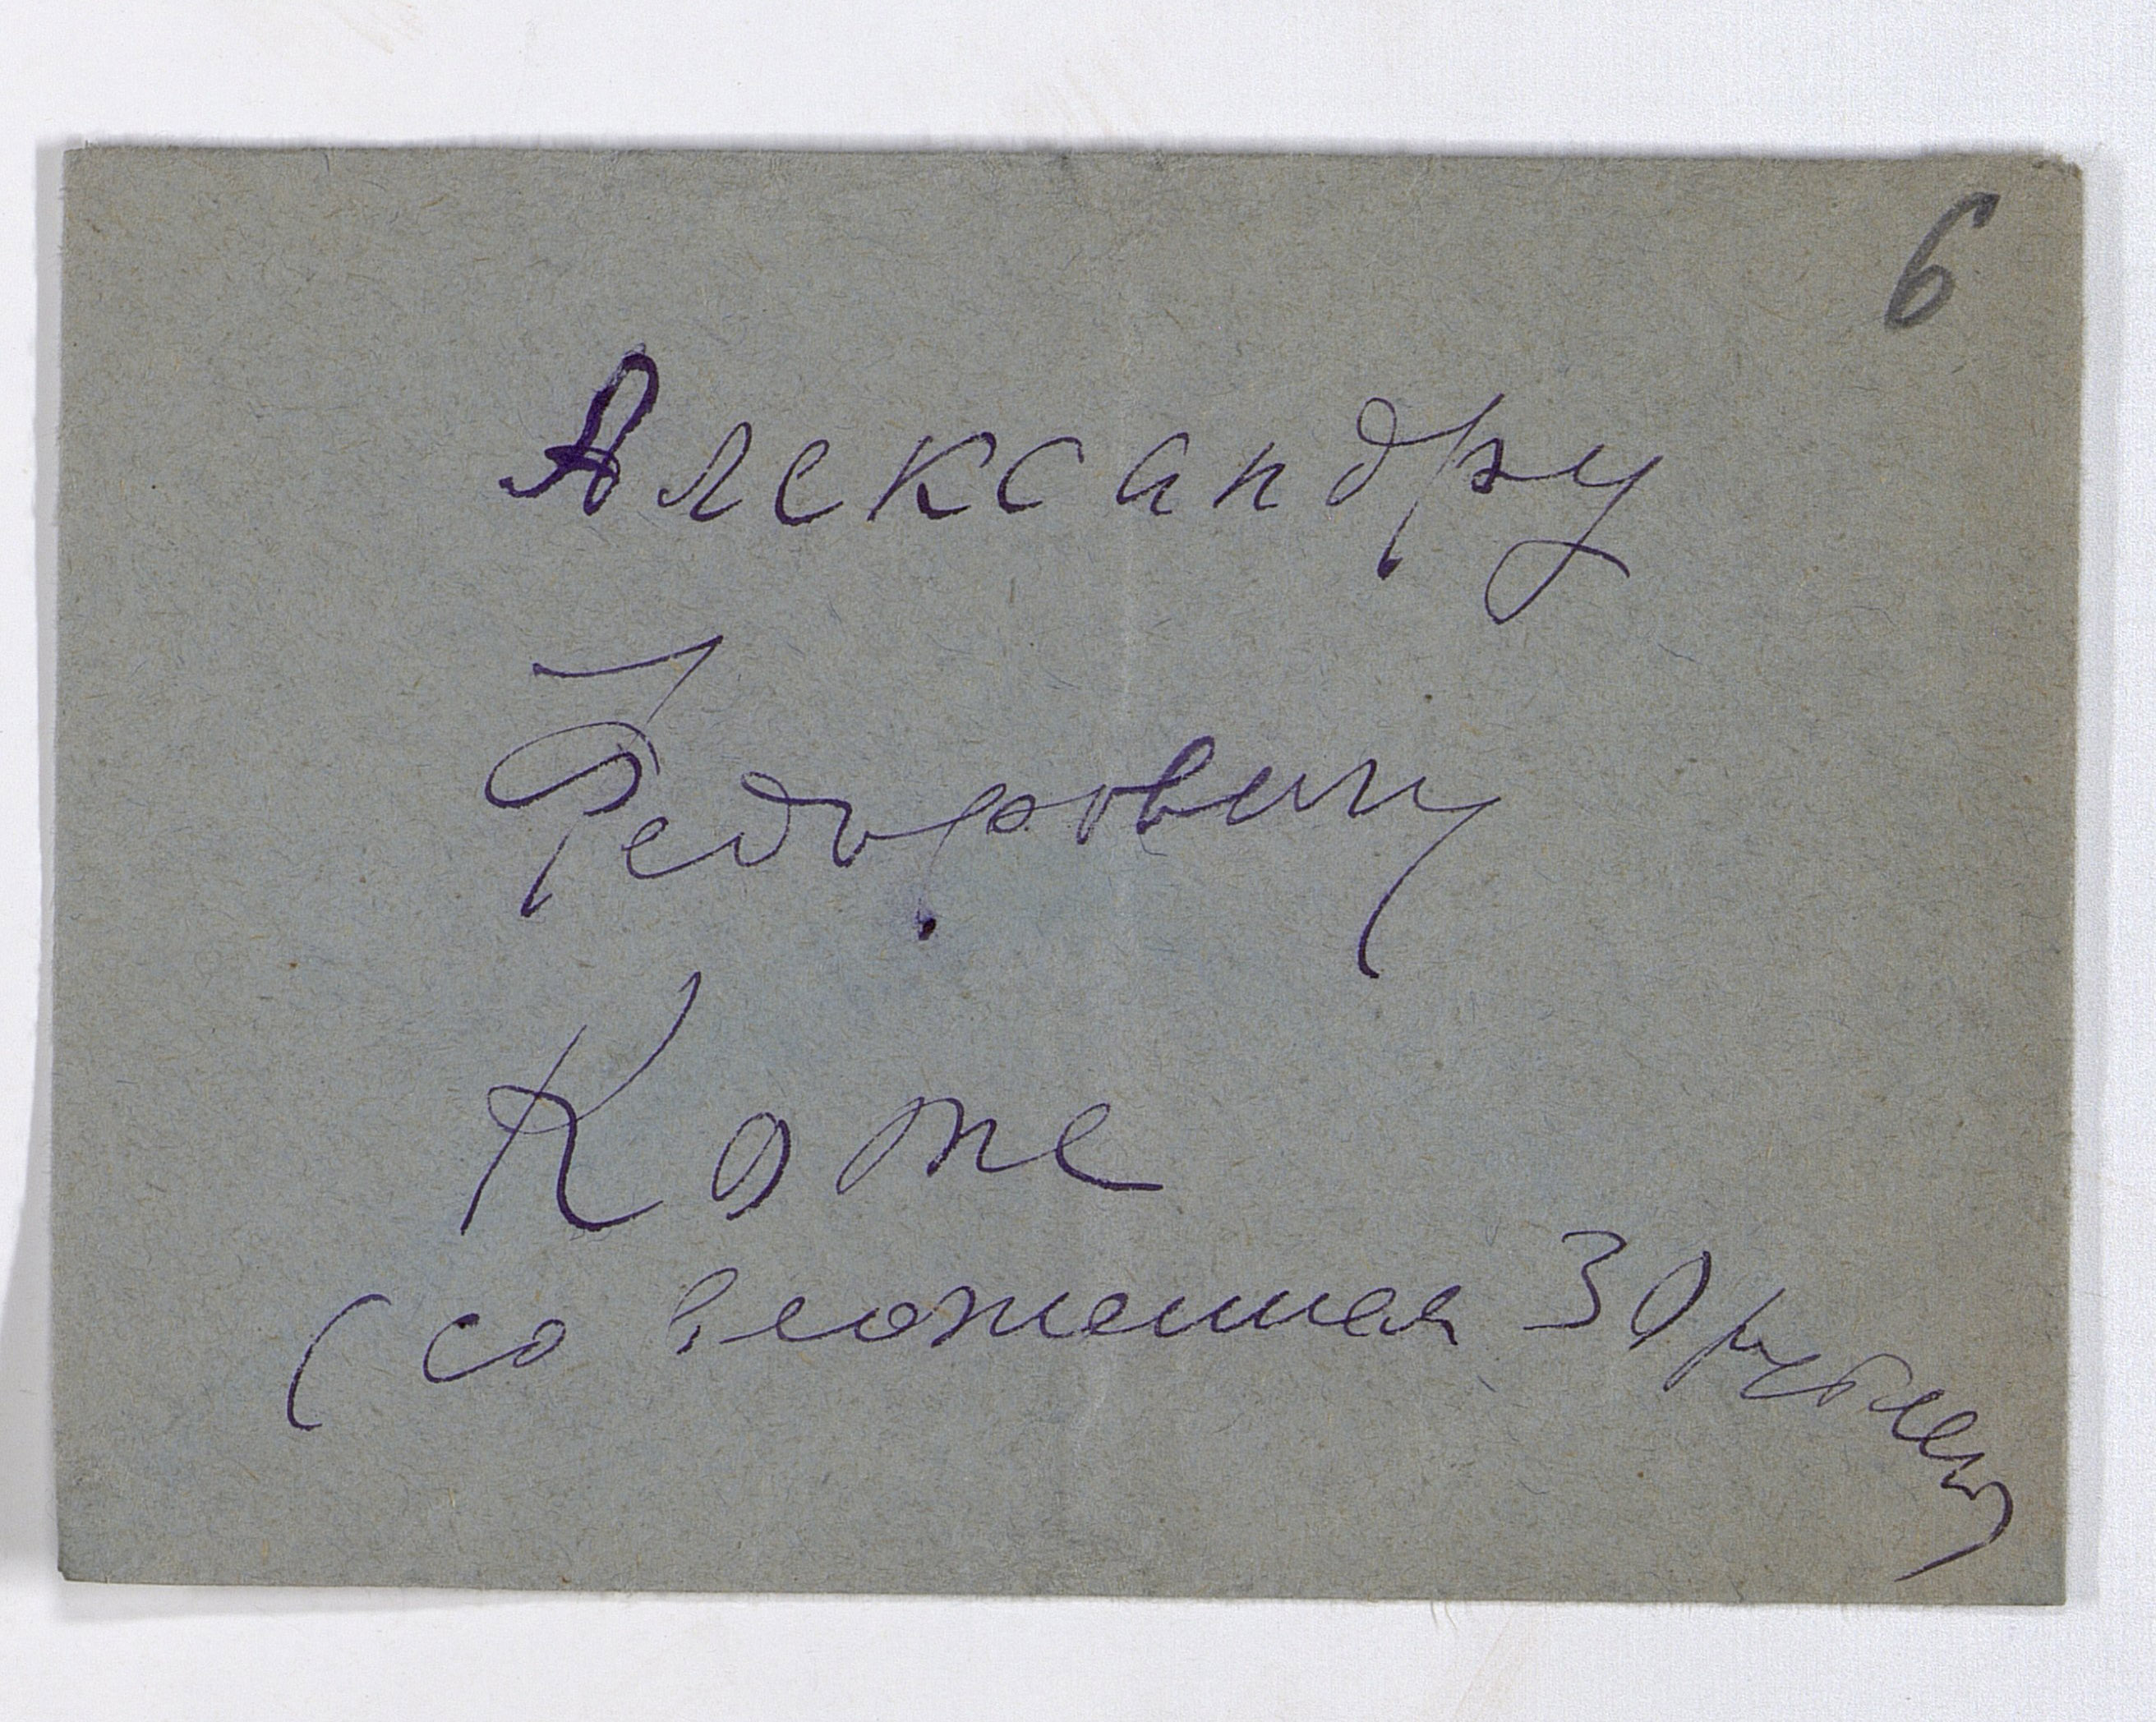 6
Александру
Федоровичу
Коже
(со вложением 30 рублей)